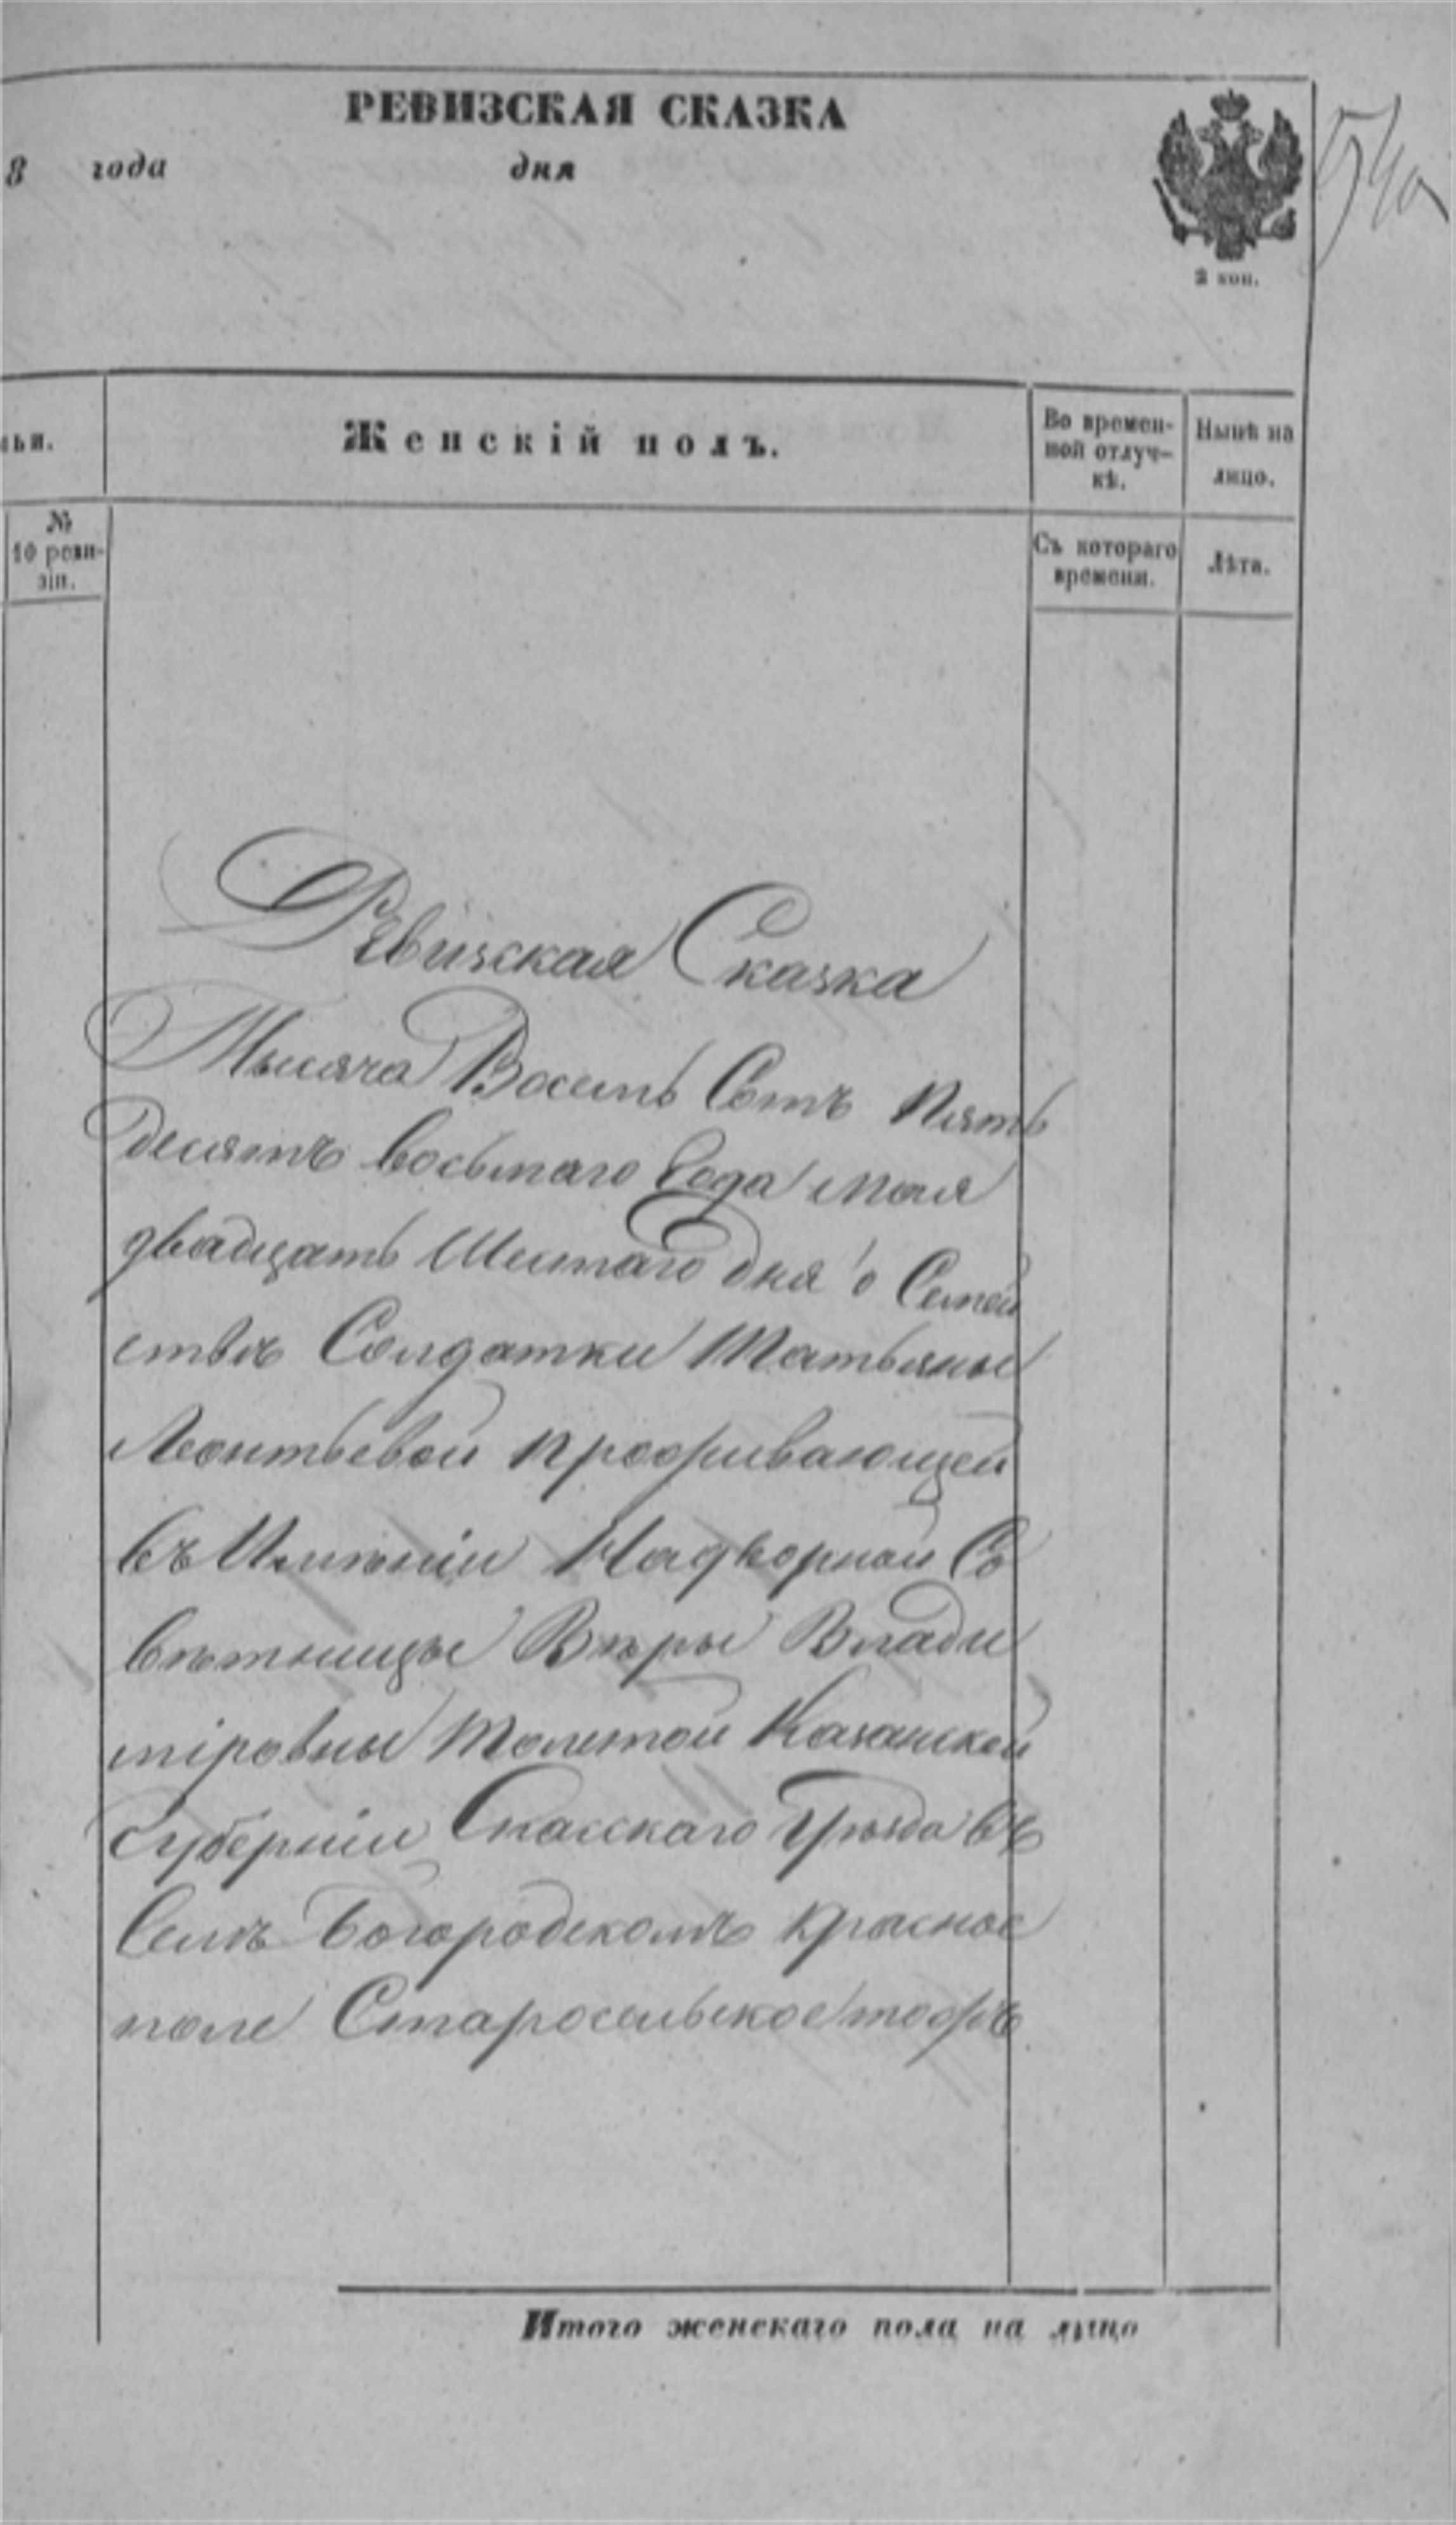 РЕВИЗСКАЯ СКАЗКА
8 года дня
2 коп.
54
льи.
Женскій полъ.
Во времен-
ной отлуч-
кѣ.
Нынѣ на
лицо.
№
10 реви-
зіи.
Съ котораго
времени.
Лѣта.
Ревизская Сказка
Тысяча Восемь Сотъ Пять
десятъ восьмаго Года мая
двадцать Шестаго дня о Семей
ствѣ Солдатки Татьяны
Леонтьевой проживающей
въ Имѣніи Надворной Со
вѣтницы Вѣры Влади
міровны Толстой Казанской
Губерніи Спасскаго Уѣзда въ
Селѣ Богородскомъ Красное
поле Старосельское тожъ
Итого женскаго пола на лицо